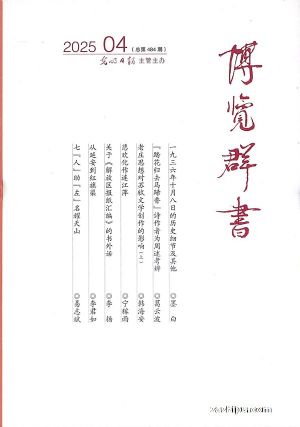 2025 04 (总第484期)
光明日报 主管主办
博览群书
一九三六年十月八日的历史细节及其他 ◎墨 白
“踏花归去马蹄香”诗作者为周述考辨 ◎葛云波
老庄思想对苏轼文学创作的影响(上) ◎韩海安
悲欢化作连江萍 ◎宁稼雨
关于《解放区报纸汇编》的书外话 ◎李 扬
从延安到红旗渠 ◎李君如
七“人”助“左”名耀天山 ◎易志斌
zazhipu.com